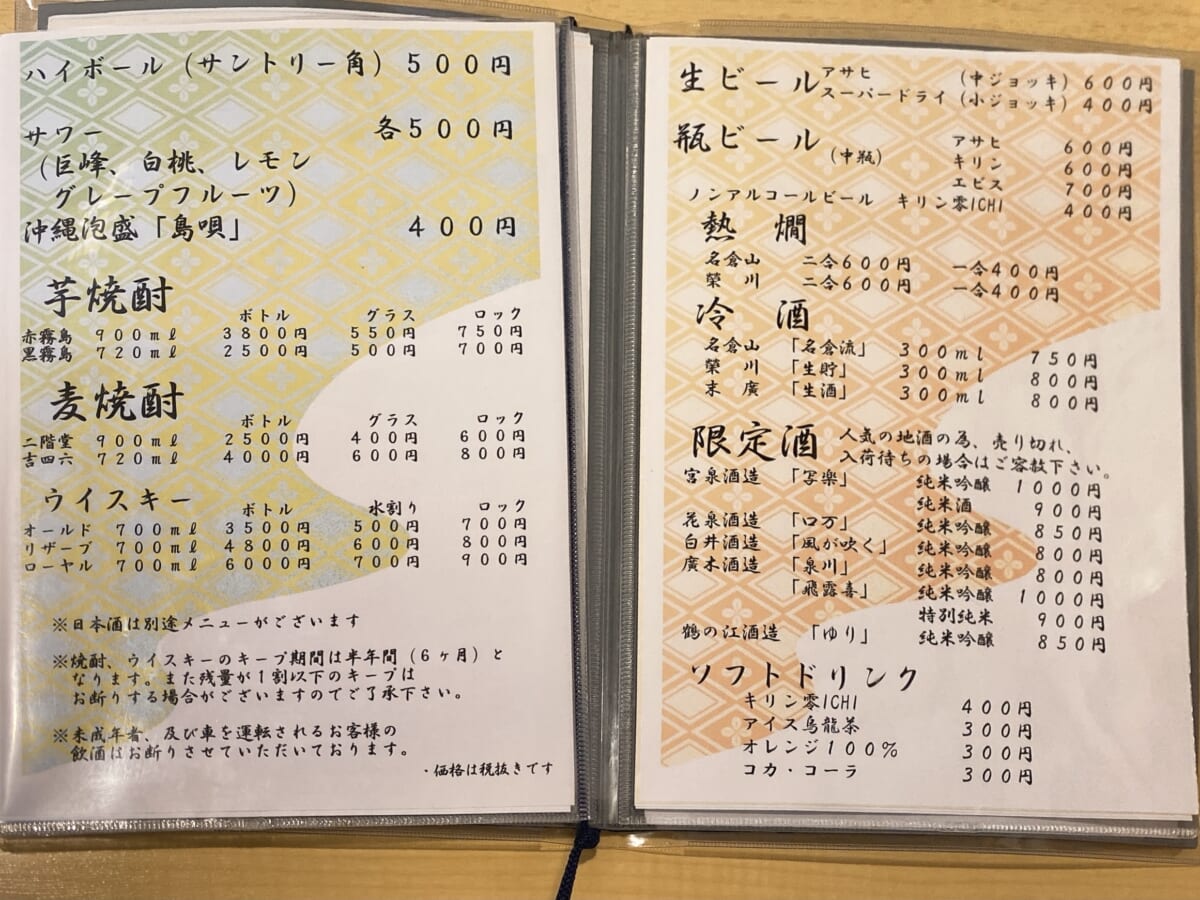 ハイボール（サントリー角）５００円
サワー　各５００円
（巨峰、白桃、レモン
グレープフルーツ）
沖縄泡盛「島唄」　４００円
芋焼酎
ボトル　グラス　ロック
赤霧島　９００ｍℓ　３８００円　５５０円　７５０円
黒霧島　７２０ｍℓ　２５００円　５００円　７００円
麦焼酎
ボトル　グラス　ロック
二階堂　９００ｍℓ　２５００円　４００円　６００円
吉四六　７２０ｍℓ　４０００円　６００円　８００円
ウイスキー
ボトル　水割り　ロック
オールド　７００ｍℓ　３５００円　５００円　７００円
リザーブ　７００ｍℓ　４８００円　６００円　８００円
ローヤル　７００ｍℓ　６０００円　７００円　９００円
※日本酒は別途メニューがございます
※焼酎、ウイスキーのキープ期間は半年間（６ヶ月）と
なります。また残量が１割以下のキープは
お断りする場合がございますのでご了承下さい。
※未成年者、及び車を運転されるお客様の
飲酒はお断りさせていただいております。
・価格は税抜きです
生ビール　アサヒ　（中ジョッキ）６００円
スーパードライ（小ジョッキ）４００円
瓶ビール（中瓶）　アサヒ　６００円
キリン　６００円
エビス　７００円
ノンアルコールビール　キリン零ICHI　４００円
熱　燗
名倉山　二合６００円　一合４００円
榮　川　二合６００円　一合４００円
冷　酒
名倉山　「名倉流」　３００ml　７５０円
榮　川　「生貯」　３００ml　８００円
末　廣　「生酒」　３００ml　８００円
限定酒　人気の地酒の為、売り切れ、
入荷待ちの場合はご容赦下さい。
宮泉酒造　「写楽」　純米吟醸　１０００円
純米酒　９００円
花泉酒造　「ロ万」　純米吟醸　８５０円
白井酒造　「風が吹く」　純米吟醸　８００円
廣木酒造　「泉川」　純米吟醸　８００円
「飛露喜」　純米吟醸　１０００円
特別純米　９００円
鶴の江酒造　「ゆり」　純米吟醸　８５０円
ソフトドリンク
キリン零ICHI　４００円
アイス烏龍茶　３００円
オレンジ１００％　３００円
コカ・コーラ　３００円